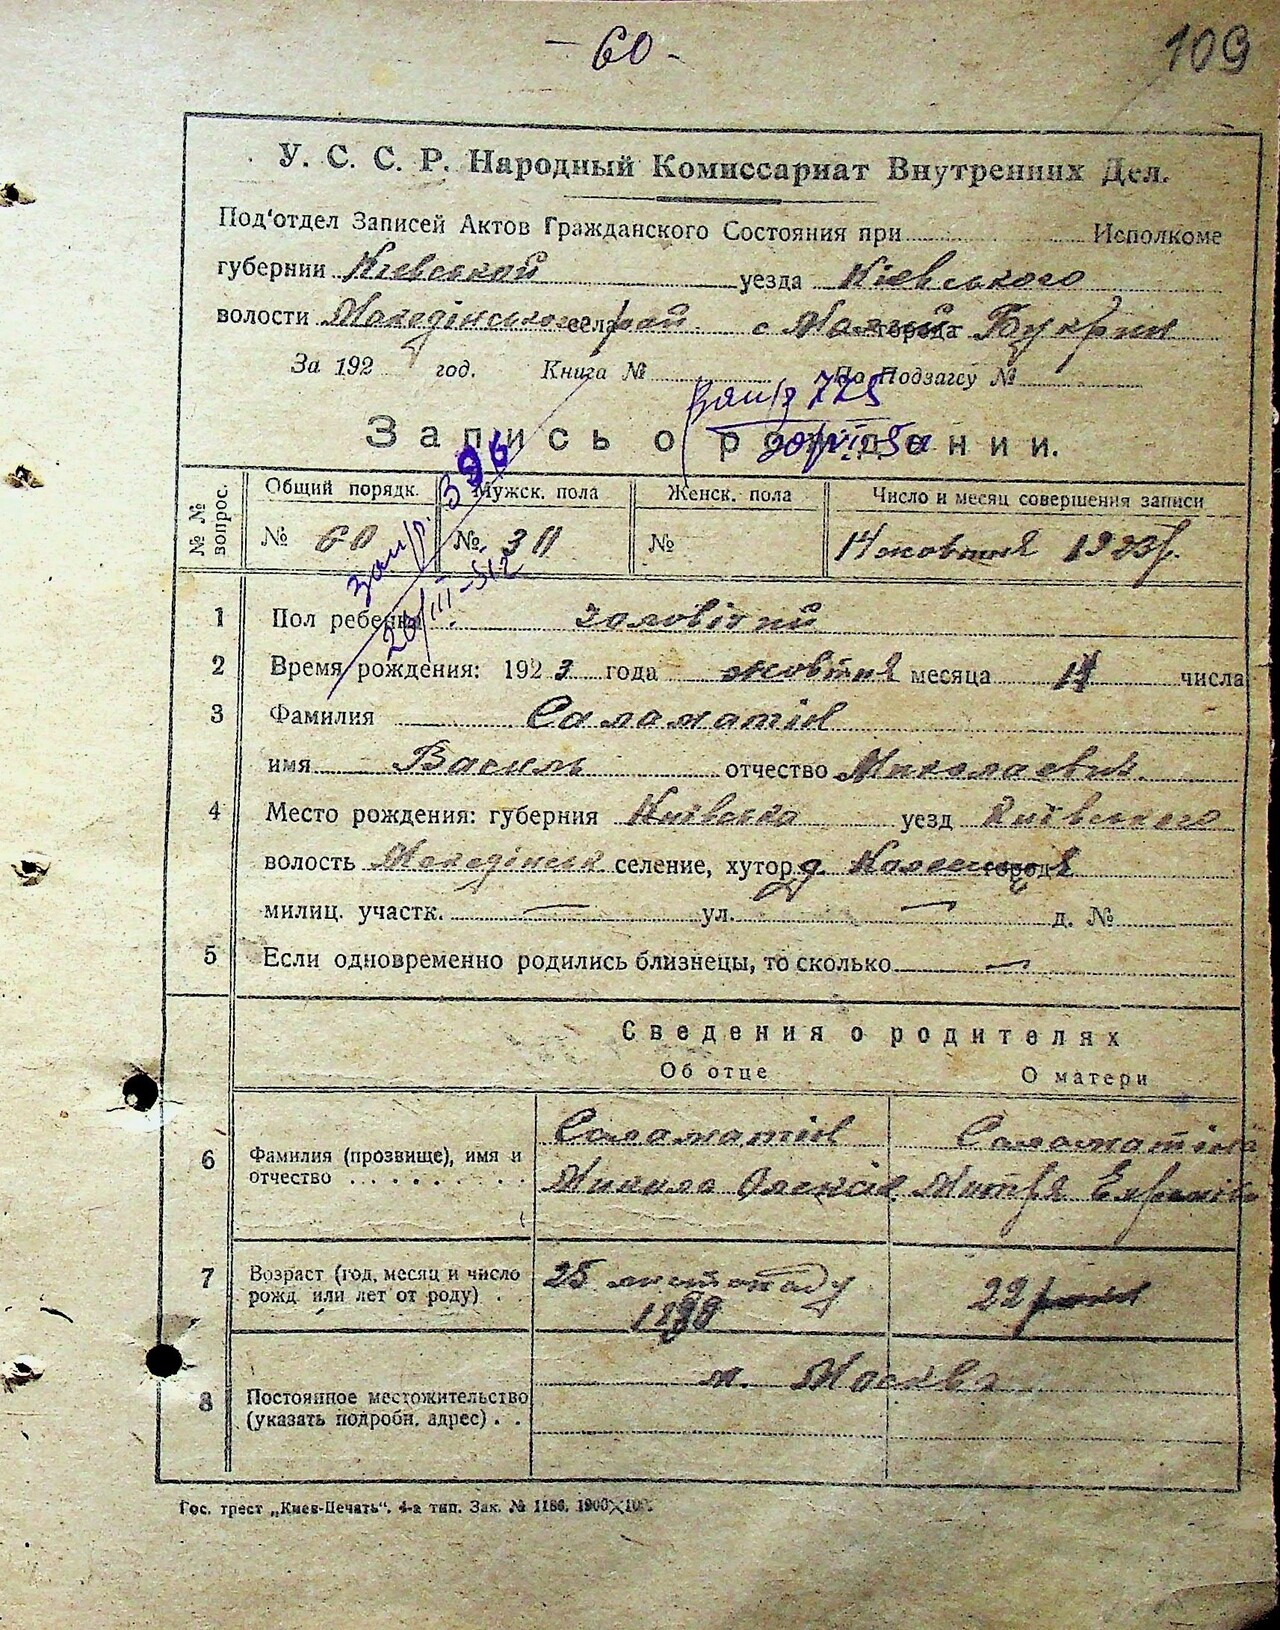 - 60 -
109
У. С. С. Р. Народный Комиссариат Внутренних Дел.
Под'отдел Записей Актов Гражданского Состояния при Исполкоме
губернии Київской уезда Київського
волости села с Малий города Букрин
За 192 год. Книга № По Подзагсу №
775
Запись о рождении.
396
№ № вопрос.
Общий порядк. Мужск. пола Женск. пола Число и месяц совершения записи
№ 60 № 30 № 14 жовтня 1923 р.
1 Пол ребенка чоловічий
2 Время рождения: 1923 года жовтня месяца числа
3 Фамилия Саламатін
имя Василь отчество Миколаевич
4 Место рождения: губерния Київська уезд Київського
волость селение, хутор, город
милиц. участк. — ул. — д. №
5 Если одновременно родились близнецы, то сколько —
Сведения о родителях
Об отце О матери
6 Фамилия (прозвище), имя и отчество Саламатін Саламатіна
Микола
7 Возраст (год, месяц и число рожд или лет от роду) 25 листопаду 22 роки
8 Постоянное местожительство (указать подробн. адрес) м. Москва
Гос. трест „Киев-Печать". 4-а тип. Зак. № 1186. 1900×100.